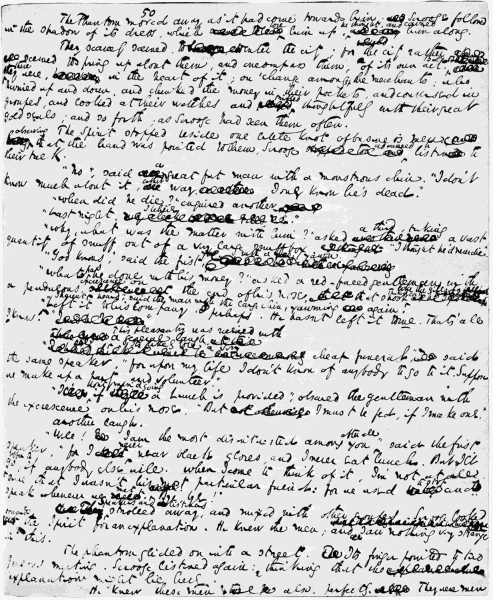 50
The Phantom moved away as it had come towards him. Scrooge followed
in the shadow of its dress, which bore him up, he thought, and carried him along.
They scarcely seemed to enter the city; for the city rather
seemed to spring up about them, and encompass them, of its own act. But there
they were, in the heart of it; on 'Change, among the merchants; who
hurried up and down, and chinked the money in their pockets, and conversed in
groupes, and looked at their watches and trifled thoughtfully with their great
gold seals; and so forth, as Scrooge had seen them often.
The Spirit stopped beside one little knot of business men.
Observing that the hand was pointed to them, Scrooge advanced to listen to
their talk.
"No", said a great fat man with a monstrous chin. "I don't
know much about it, either way. I only know he's dead."
"When did he die?" enquired another
"Last night, I believe."
"Why, what was the matter with him?" asked a third, taking a vast
quantity of snuff out of a very large snuff box. "I thought he'd never die."
"God knows," said the first, with a yawn.
"What has he done with his money?" asked a red-faced gentleman with
a pendulous excrescence on the end of his nose,
"I haven't heard," said the man with the large chin, yawning again.
"Left it to his company, perhaps. He hasn't left it to me. That's all
I know."
This pleasantry was received with
a general laugh.
"It's likely to be a very cheap funeral" said
the same speaker. "for upon my life I don't know of anybody to go to it. Suppose
we make up a party and volunteer?"
"I don't mind going if a lunch is provided", observed the gentleman with
the excrescence on his nose. "But I must be fed, if I make one."
another laugh.
"Well! I am the most disinterested among you after all" said the first
speaker, "for I never wear black gloves, and I never eat lunch. But I'll
offer to go if anybody else will. When I come to think of it, I'm not at all
sure that I wasn't his most particular friend; for we used to stop and
speak whenever we met. Bye bye!"
Speakers and listeners strolled away, and mixed with other groupes. Scrooge looked
towards the Spirit for an explanation. He knew the men, and saw nothing very strange
in this.
The phantom glided on into a street. Its finger pointed to two
persons meeting. Scrooge listened again: thinking that the
explanation might lie here.
He knew these men also, perfectly. They were men